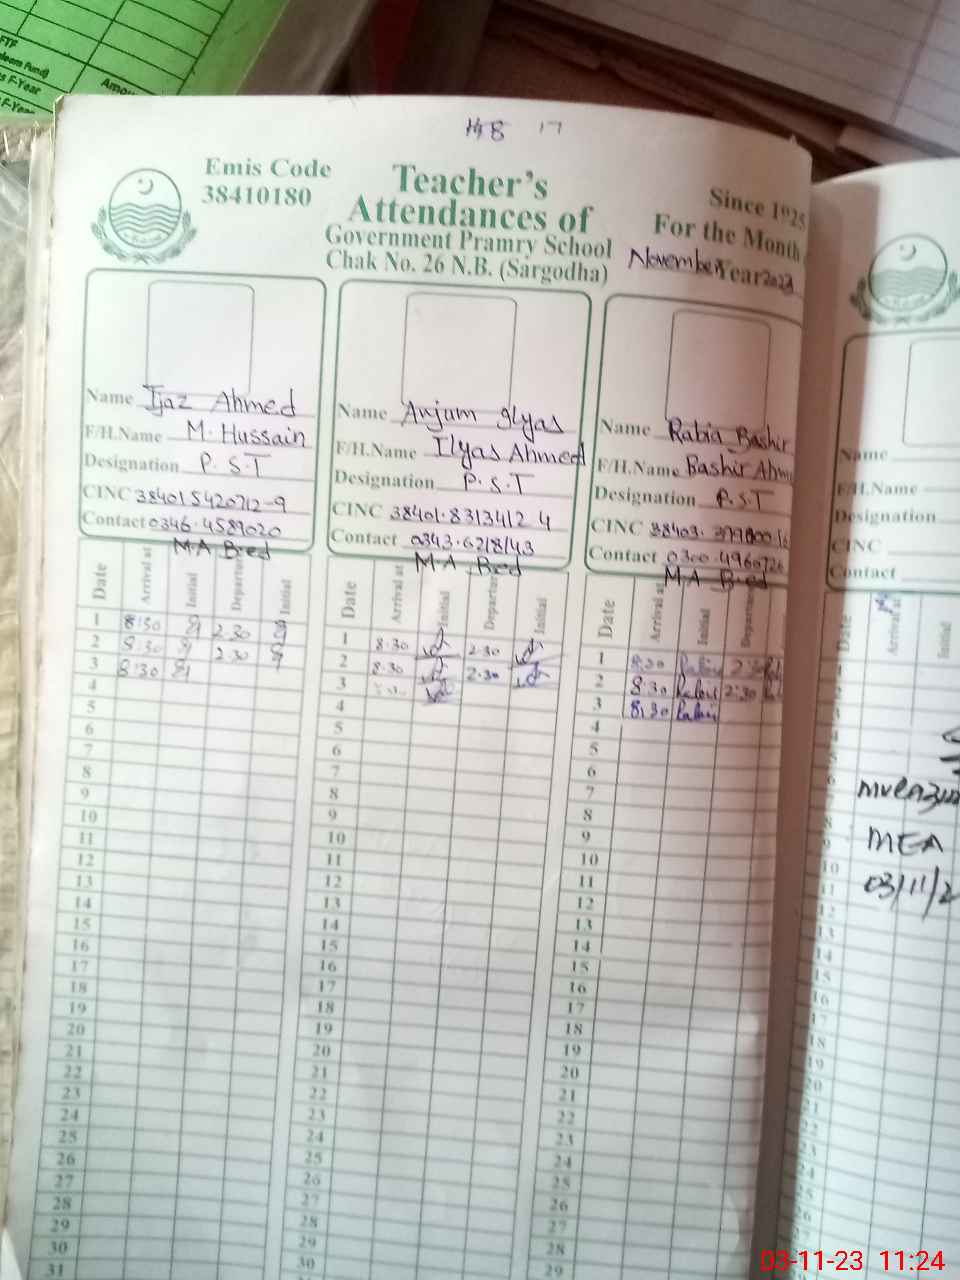 FTF
F-Year
F-Year
Amou
HB 17
Emis Code
38410180
Teacher's
Attendances of
Government Pramry School
Chak No. 26 N.B. (Sargodha)
Since 1925
For the Month
November Year 2023
Name Ijaz Ahmed
F/H.Name M. Hussain
Designation P.S.T
CINC 384015420712-9
Contact 0346.4589020
MA B.ed
Name Anjum Ilyas
F/H.Name Ilyas Ahmed
Designation P.S.T
CINC 38401.8313412 4
Contact 0343.6218143
MA B.ed
Name Rabia Bashir
F/H.Name Bashir Ahm
Designation P.S.T
CINC 38403.
Contact 0300.4960726
MA B.ed
Date Arrival at Initial Departur Initial
1 8:30 2.30
2 8.30 2.30
3 8:30
4
5
6
7
8
9
10
11
12
13
14
15
16
17
18
19
20
21
22
23
24
25
26
27
28
29
30
31
Date Arrival at Initial Departur Initial
1 8.30 2.30
2 8.30 2.30
3
4
5
6
7
8
9
10
11
12
13
14
15
16
17
18
19
20
21
22
23
24
25
26
27
28
29
30
Date Arrival at Initial Departur
1 8:30 Rabia 2:30
2 8:30 Rabia 2:30
3 8:30 Rabia
4
5
6
7
8
9
10
11
12
13
14
15
16
17
18
19
20
21
22
23
24
25
26
27
28
29
Name
F/H.Name
Designation
CINC
Contact
Date Arrival at Initial
MEA
03/11/2
10
11
12
13
14
15
16
17
18
19
20
21
22
23
24
25
26
27
03-11-23 11:24